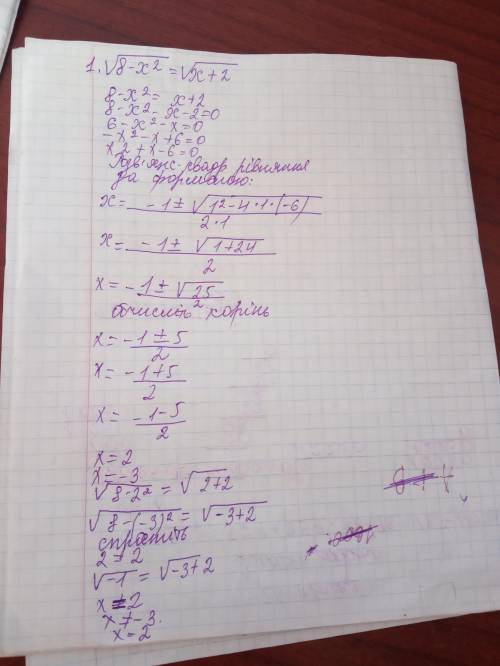 1. √8-x² = √x+2
8-x² = x+2
8-x²-x-2=0
6-x²-x=0
-x²-x+6=0
x²+x-6=0
квадр рівняння
за формулою:
x = -1 ± √1²-4·1·(-6) / 2·1
x = -1 ± √1+24 / 2
x = -1 ± √25 / 2
обчисліть корінь
x = -1 ± 5 / 2
x = -1+5 / 2
x = -1-5 / 2
x = 2
x = -3
√8-2² = √2+2
√8-(-3)² = √-3+2
спростить
2 = 2
√-1 = √-3+2
x = 2
x ≠ -3.
x = 2